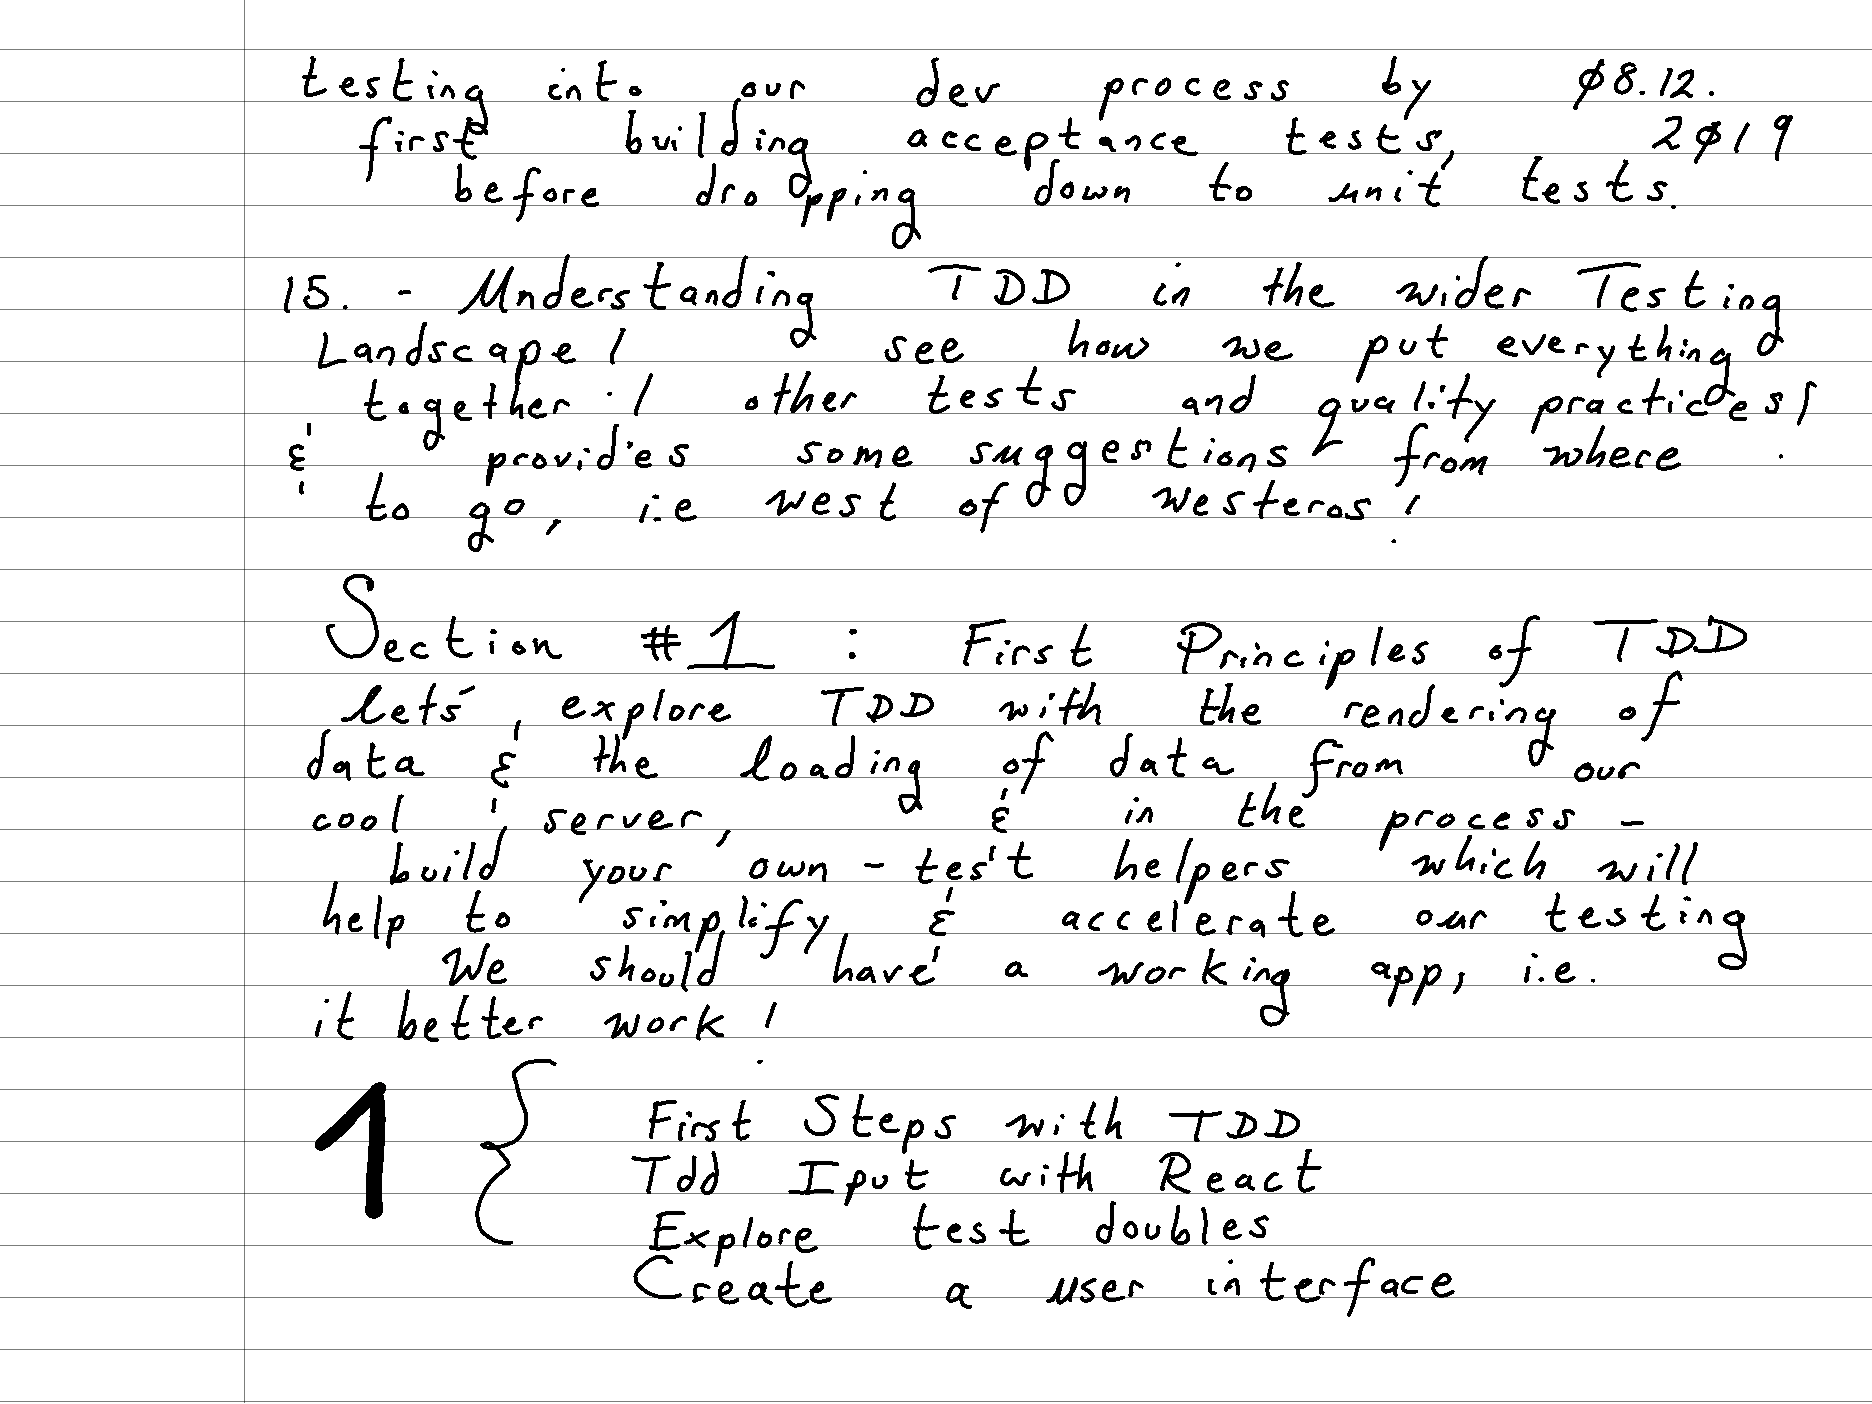 testing into our dev process by ø8.12.
first building acceptance tests, 2ø19
before dropping down to unit tests.
15. - Understanding TDD in the wider Testing
Landscape! see how we put everything
together! other tests and quality practices!
& provides some suggestions from where
to go, i.e west of westeros!
Section #1 : First Principles of TDD
let's, explore TDD with the rendering of
data & the loading of data from our
cool server, & in the process -
build your own - test helpers which will
help to simplify & accelerate our testing
We should have a working app, i.e.
it better work!
1 { First Steps with TDD
Tdd Iput with React
Explore test doubles
Create a user interface